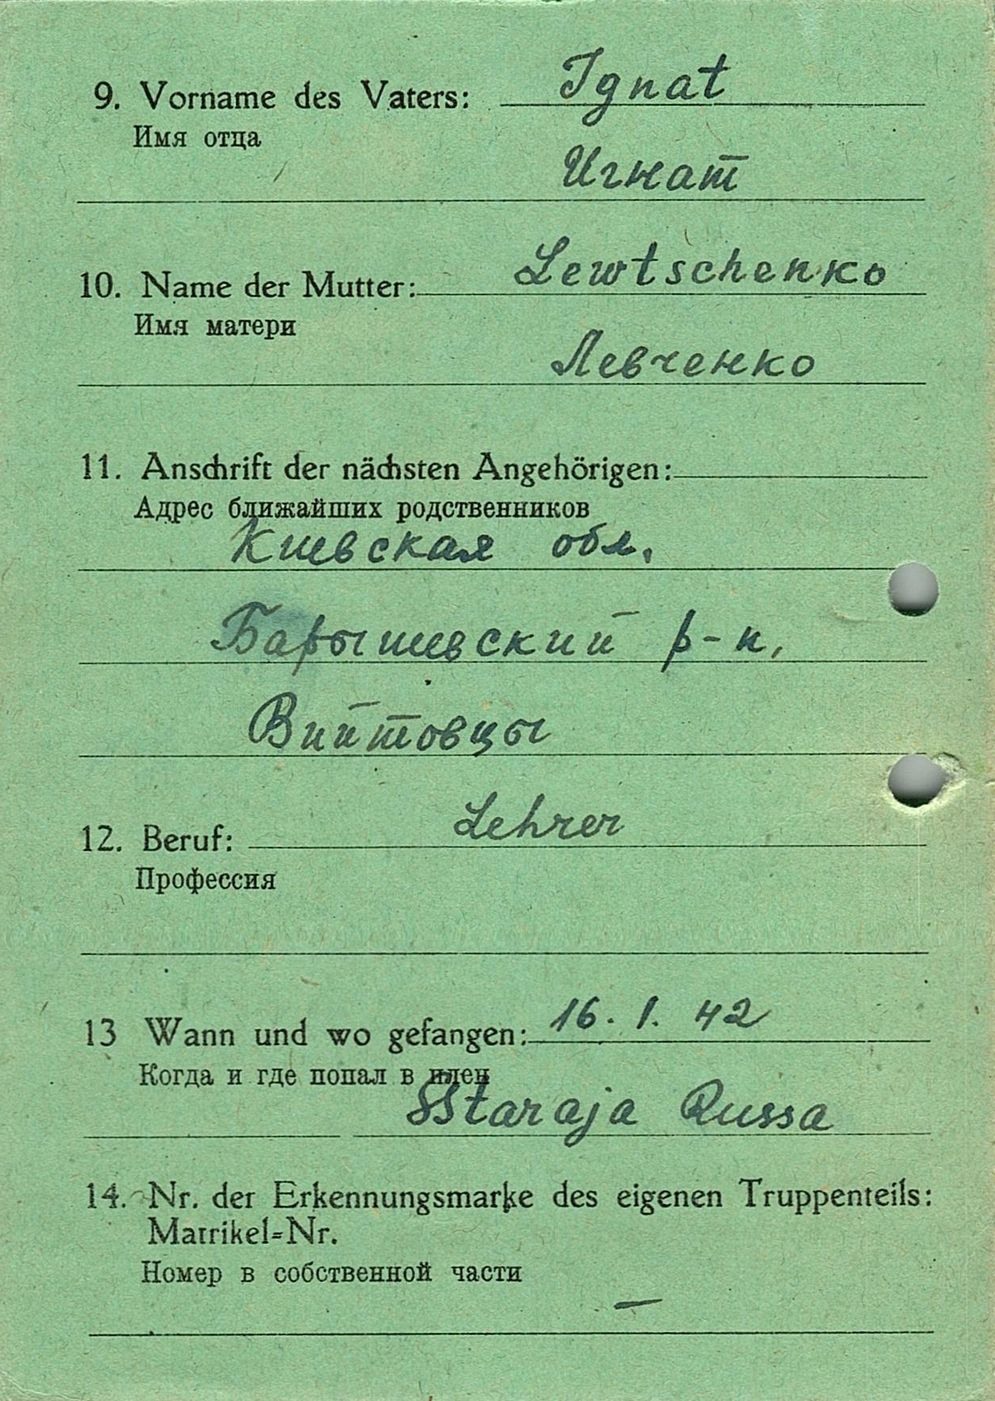 9. Vorname des Vaters: Ignat
Имя отца
Игнат
10. Name der Mutter: Lewtschenko
Имя матери
Левченко
11. Anschrift der nächsten Angehörigen:
Адрес ближайших родственников
Киевская обл,
Барышевский р-н,
Вийтовцы
12. Beruf: Lehrer
Профессия
13 Wann und wo gefangen: 16. 1. 42
Когда и где попал в плен
Staraja Russa
14. Nr. der Erkennungsmarke des eigenen Truppenteils:
Matrikel-Nr.
Номер в собственной части
—